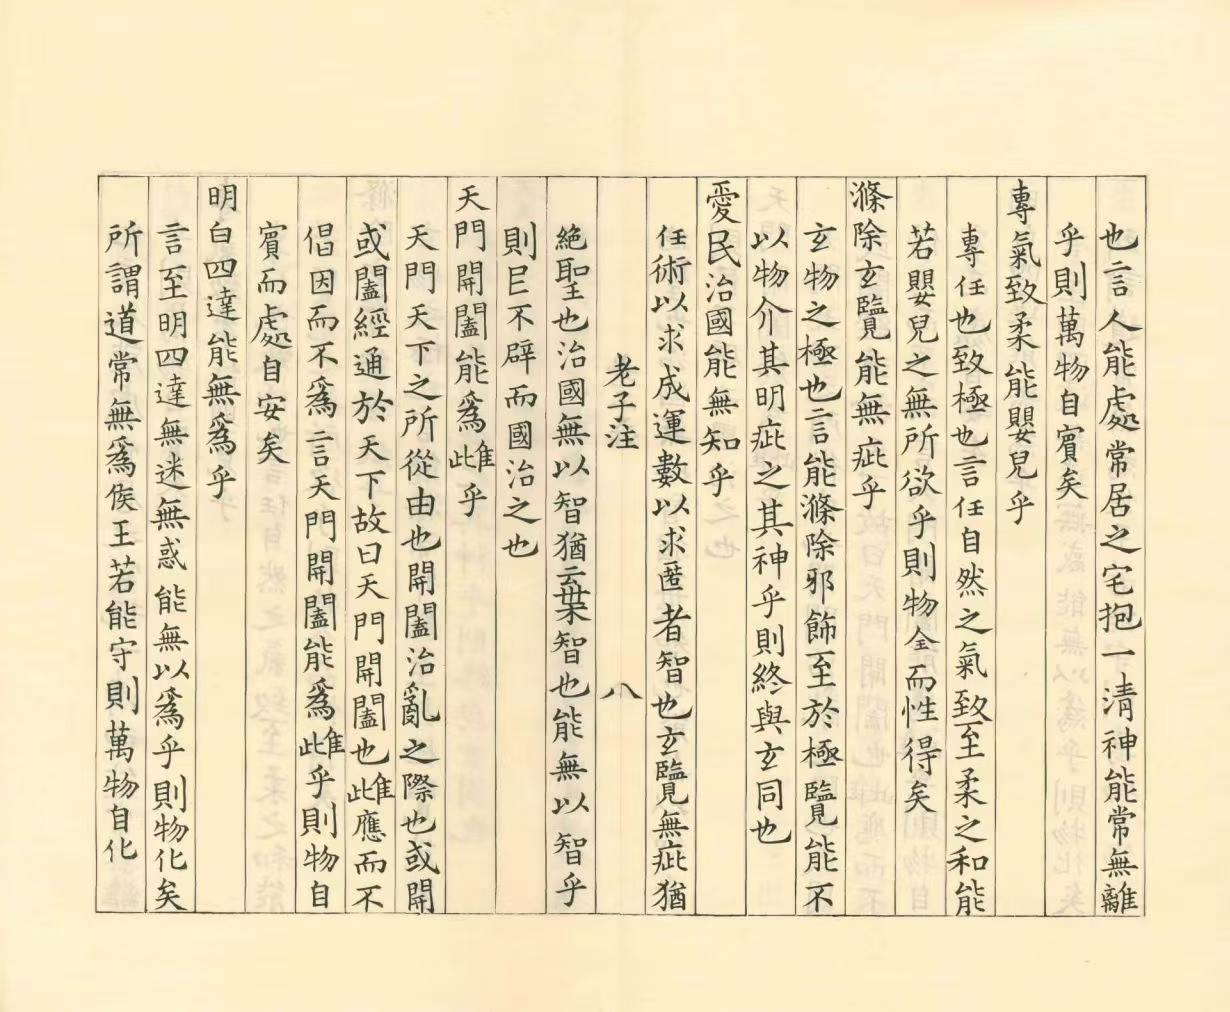 也言人能處常居之宅抱一清神能常無離
乎則萬物自賓矣
專氣致柔能嬰兒乎
專任也致極也言任自然之氣致至柔之和能
若嬰兒之無所欲乎則物全而性得矣
滌除玄覽能無疵乎
玄物之極也言能滌除邪飾至於極覽能不
以物介其明疵之其神乎則終與玄同也
愛民治國能無知乎
任術以求成運數以求匿者智也玄覽無疵猶
老子注 八
絶聖也治國無以智猶云棄智也能無以智乎
則民不辟而國治之也
天門開闔能爲雌乎
天門天下之所從由也開闔治亂之際也或開
或闔經通於天下故曰天門開闔也雌應而不
倡因而不爲言天門開闔能爲雌乎則物自
賓而處自安矣
明白四達能無爲乎
言至明四達無迷無惑能無以爲乎則物化矣
所謂道常無爲侯王若能守則萬物自化